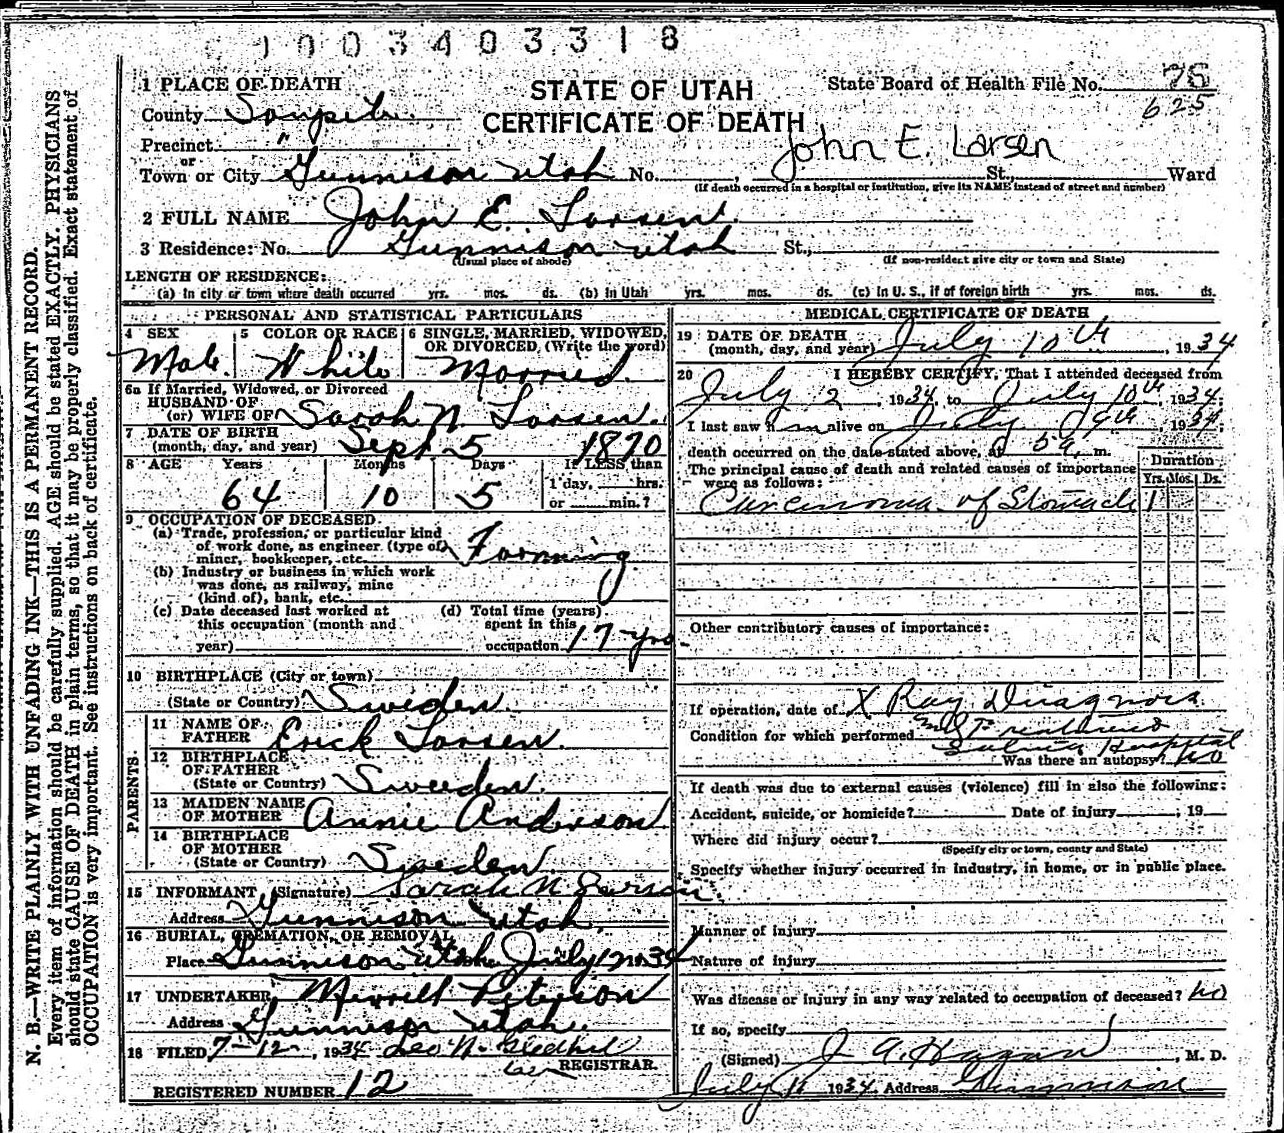 1003403318
1 PLACE OF DEATH
STATE OF UTAH
CERTIFICATE OF DEATH
State Board of Health File No. 75
625
County Sanpete
Precinct "
or
Town or City Gunnison Utah No. , John E. Larsen St., Ward
(If death occurred in a hospital or institution, give its NAME instead of street and number)
2 FULL NAME John E. Larsen.
3 Residence: No. Gunnison Utah St.,
(Usual place of abode) (If non-resident give city or town and State)
LENGTH OF RESIDENCE:
(a) In city or town where death occurred yrs. mos. ds. (b) In Utah yrs. mos. ds. (c) In U. S., if of foreign birth yrs. mos. ds.
PERSONAL AND STATISTICAL PARTICULARS
4 SEX
Male.
5 COLOR OR RACE
White
6 SINGLE, MARRIED, WIDOWED,
OR DIVORCED, (Write the word)
Married.
6a If Married, Widowed, or Divorced
HUSBAND OF
(or) WIFE OF Sarah N. Larsen.
7 DATE OF BIRTH
(month, day, and year) Sept 5 1870
8 AGE Years Months Days If LESS than
64 10 5 1 day, hrs.
or min.?
9 OCCUPATION OF DECEASED
(a) Trade, profession, or particular kind
of work done, as engineer (type of)
miner, bookkeeper, etc. Farming
(b) Industry or business in which work
was done, as railway, mine
(kind of), bank, etc.
(c) Date deceased last worked at
this occupation (month and
year)
(d) Total time (years)
spent in this
occupation 17 yrs
10 BIRTHPLACE (City or town)
(State or Country) Sweden.
PARENTS
11 NAME OF
FATHER Erick Larsen.
12 BIRTHPLACE
OF FATHER
(State or Country) Sweeden.
13 MAIDEN NAME
OF MOTHER Annie Anderson
14 BIRTHPLACE
OF MOTHER
(State or Country) Sweden
15 INFORMANT (Signature) Sarah N
Address Gunnison Utah.
16 BURIAL, CREMATION, OR REMOVAL
Place Gunnison Utah July 12 1934
17 UNDERTAKER, Merrell Peterson
Address Gunnison Utah.
18 FILED, 7-12, 1934 Leo N. Gledhill
REGISTRAR.
REGISTERED NUMBER 12
MEDICAL CERTIFICATE OF DEATH
19 DATE OF DEATH
(month, day, and year) July 10th, 1934
20 I HEREBY CERTIFY, That I attended deceased from
July 2, 1934, to July 10th, 1934;
I last saw him alive on July 9th 1934;
death occurred on the date stated above, at 5 a, m.
The principal cause of death and related causes of importance
were as follows:
Duration
Yrs. Mos. Ds.
Carcinoma of Stomach 1
Other contributory causes of importance:
If operation, date of X Ray Diagnosis
Condition for which performed
Salina Hospital
Was there an autopsy? No
If death was due to external causes (violence) fill in also the following:
Accident, suicide, or homicide? Date of injury , 19
Where did injury occur?
(Specify city or town, county and State)
Specify whether injury occurred in industry, in home, or in public place.
Manner of injury
Nature of injury
Was disease or injury in any way related to occupation of deceased? No
If so, specify
(Signed) J A. Hagan, M. D.
July 11 1934 Address Gunnison
N. B.—WRITE PLAINLY WITH UNFADING INK—THIS IS A PERMANENT RECORD.
Every item of information should be carefully supplied. AGE should be stated EXACTLY. PHYSICIANS
should state CAUSE OF DEATH in plain terms, so that it may be properly classified. Exact statement of
OCCUPATION is very important. See instructions on back of certificate.